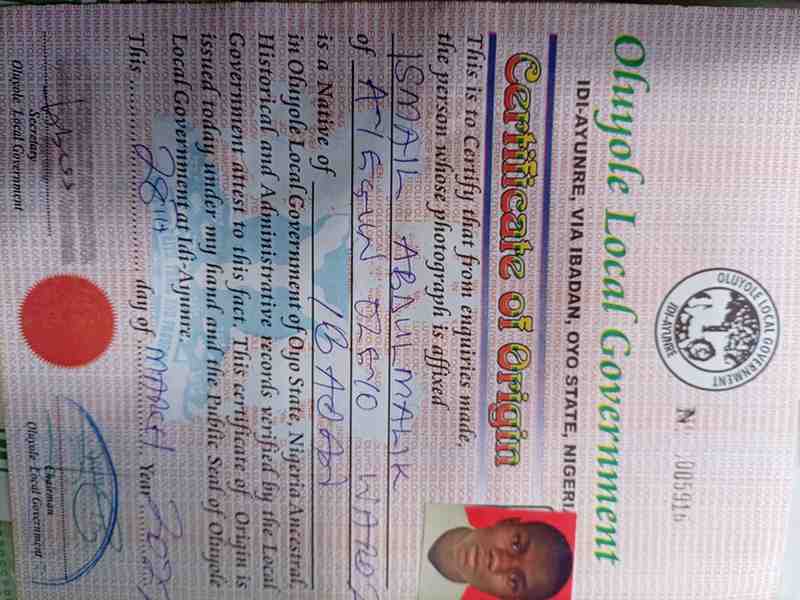 Oluyole Local Government
IDI-AYUNRE, VIA IBADAN, OYO STATE, NIGERI
OLUYOLE LOCAL GOVERNMENT
IDI-AYUNRE
No 005916
Certificate of Origin
This is to Certify that from enquiries made,
the person whose photograph is affixed
ISMAIL ABDULMALIK
of
is a Native of IBADAN
in Oluyole Local Government of Oyo State, Nigeria Ancestral,
Historical and Administrative records verified by the Local
Government attest to this fact. This certificate of Origin is
issued today under my hand and the Public Seal of Oluyole
Local Government at Idi-Ayunre.
This 28th day of MARCH Year
Secretary
Oluyole Local Government
Chairman
Oluyole Local Government